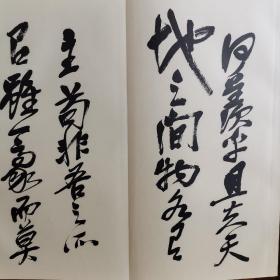 何羡乎且夫天
地之间物各有
主苟非吾之所
有雖一毫而莫